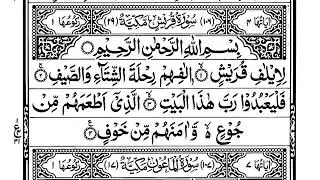 اٰیَاتُهَا ٤ (١٠٦) سُوْرَةُ قُرَیْشٍ مَّكِّیَّةٌ (٢٩) رُكُوْعُهَا ١
بِسْمِ اللّٰهِ الرَّحْمٰنِ الرَّحِیْمِ
لِاِیْلٰفِ قُرَیْشٍۙ اٖلٰفِهِمْ رِحْلَةَ الشِّتَآءِ وَالصَّیْفِۚ
فَلْیَعْبُدُوْا رَبَّ هٰذَا الْبَیْتِۙ الَّذِیْۤ اَطْعَمَهُمْ مِّنْ
جُوْعٍ ۙ وَّاٰمَنَهُمْ مِّنْ خَوْفٍ
اٰیَاتُهَا ٧ (١٠٧) سُوْرَةُ الْمَاعُوْنِ مَكِّیَّةٌ (١٧) رُكُوْعُهَا ١